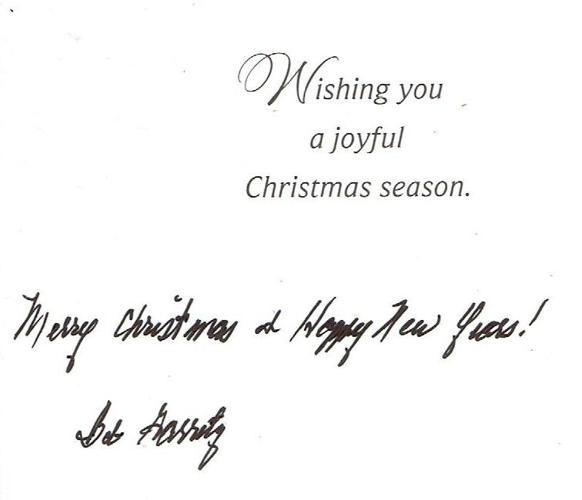 Wishing you
a joyful
Christmas season.
Merry Christmas & Happy New Years!
Bob